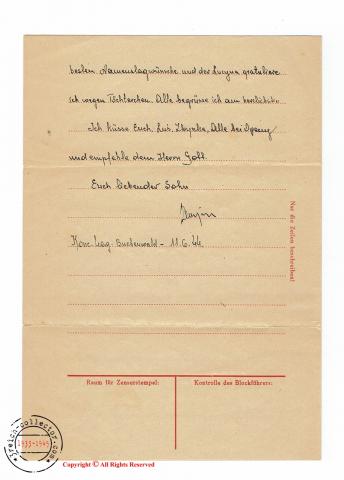 besten Namenstagwünsche und der Lucyna gratuliere
ich wegen Töchterchen. Alle begrüsse ich am herzlichsten
Ich küsse Euch, Lus, Zbyszka, Alle bei
und empfehle dem Herrn Gott.
Euch liebender Sohn
Konc. Lag. Buchenwald - 11.6.44
Nur die Zeilen beschreiben!
Raum für Zensorstempel:
Kontrolle des Blockführers:
3reich-collector.com
1933-1945
Copyright © All Rights Reserved